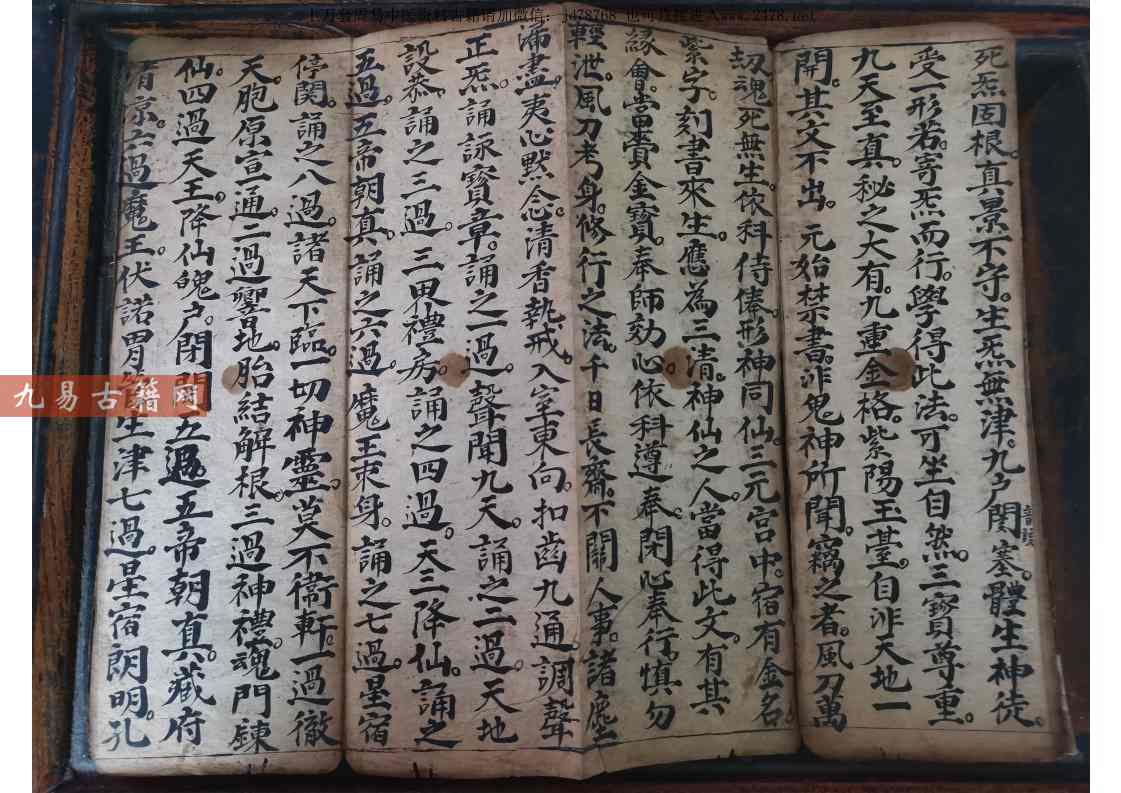 死炁固根。真景不守。生炁無津。九户閇塞。體生神徒。
受一形若。寄炁而行。學得此法。可坐自然。三寳尊重。
九天至真。秘之大有。九重金格。紫陽玉臺。自非天地一
開。其文不出。元始禁書。非鬼神所聞。竊之者。風刀萬
劫魂死無生。依科侍俸。形神同仙。三元宫中。宿有金名。
紫字。刻書來生。應為三清。神仙之人。當得此文。有其
緣會。當賫金寳。奉師効心。依科遵奉。閇心奉行。慎勿
輕泄。風刀考身。修行之法。千日長齋。不關人事。諸塵
漏盡。夷心默念。清香執戒。入室東向。扣齒九通。調聲
正炁。誦詠寳章。誦之一過。聲聞九天。誦之二過。天地
設恭。誦之三過。三界禮房。誦之四過。天王降仙。誦之
五過。五帝朝真。誦之六過。魔王束身。誦之七過。星宿
停関。誦之八過。諸天下臨。一切神靈。莫不衞軒。一過徹
天。胞原宣通。二過響地。胎結解根。三過神禮。魂門鍊
仙。四過天王。降仙魄户。閉関五過五帝朝真。藏府
清凉。六過魔王。伏諾胃生津七過。星宿朗明。孔
九易古籍网